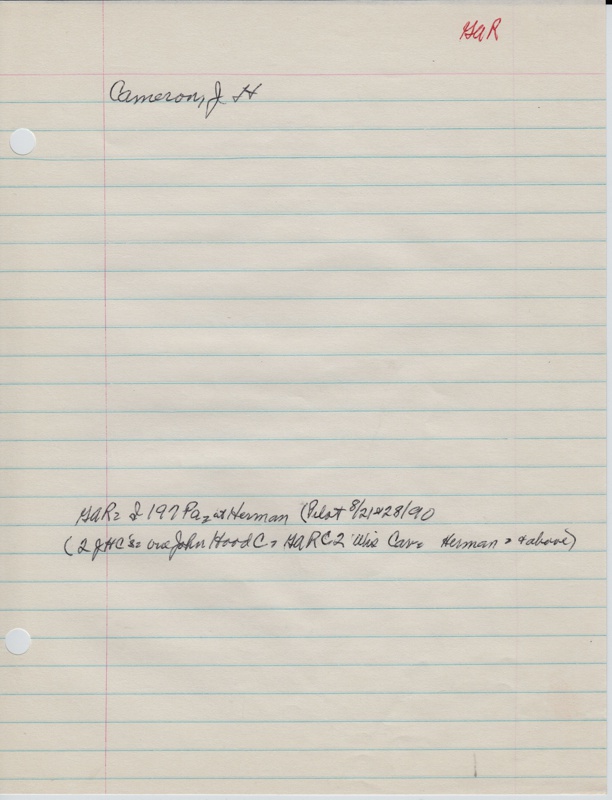 GAR
Cameron, J H
GAR= I 197 Pa= at Herman (Pilot 8/21&28/90
(2 JHC's= one John Hood C, GAR C2 Wis Cav= Herman, & above)